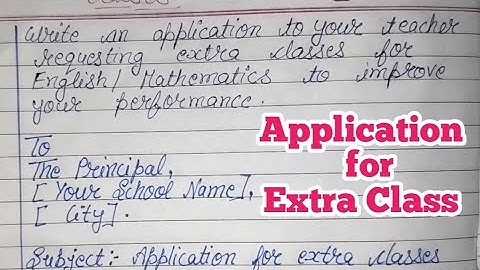 Write an application to your teacher
requesting extra classes for
English/Mathematics to improve
your performance.
To
The Principal,
[Your School Name],
[City].
Subject:- Application for extra classes
Application
for
Extra Class